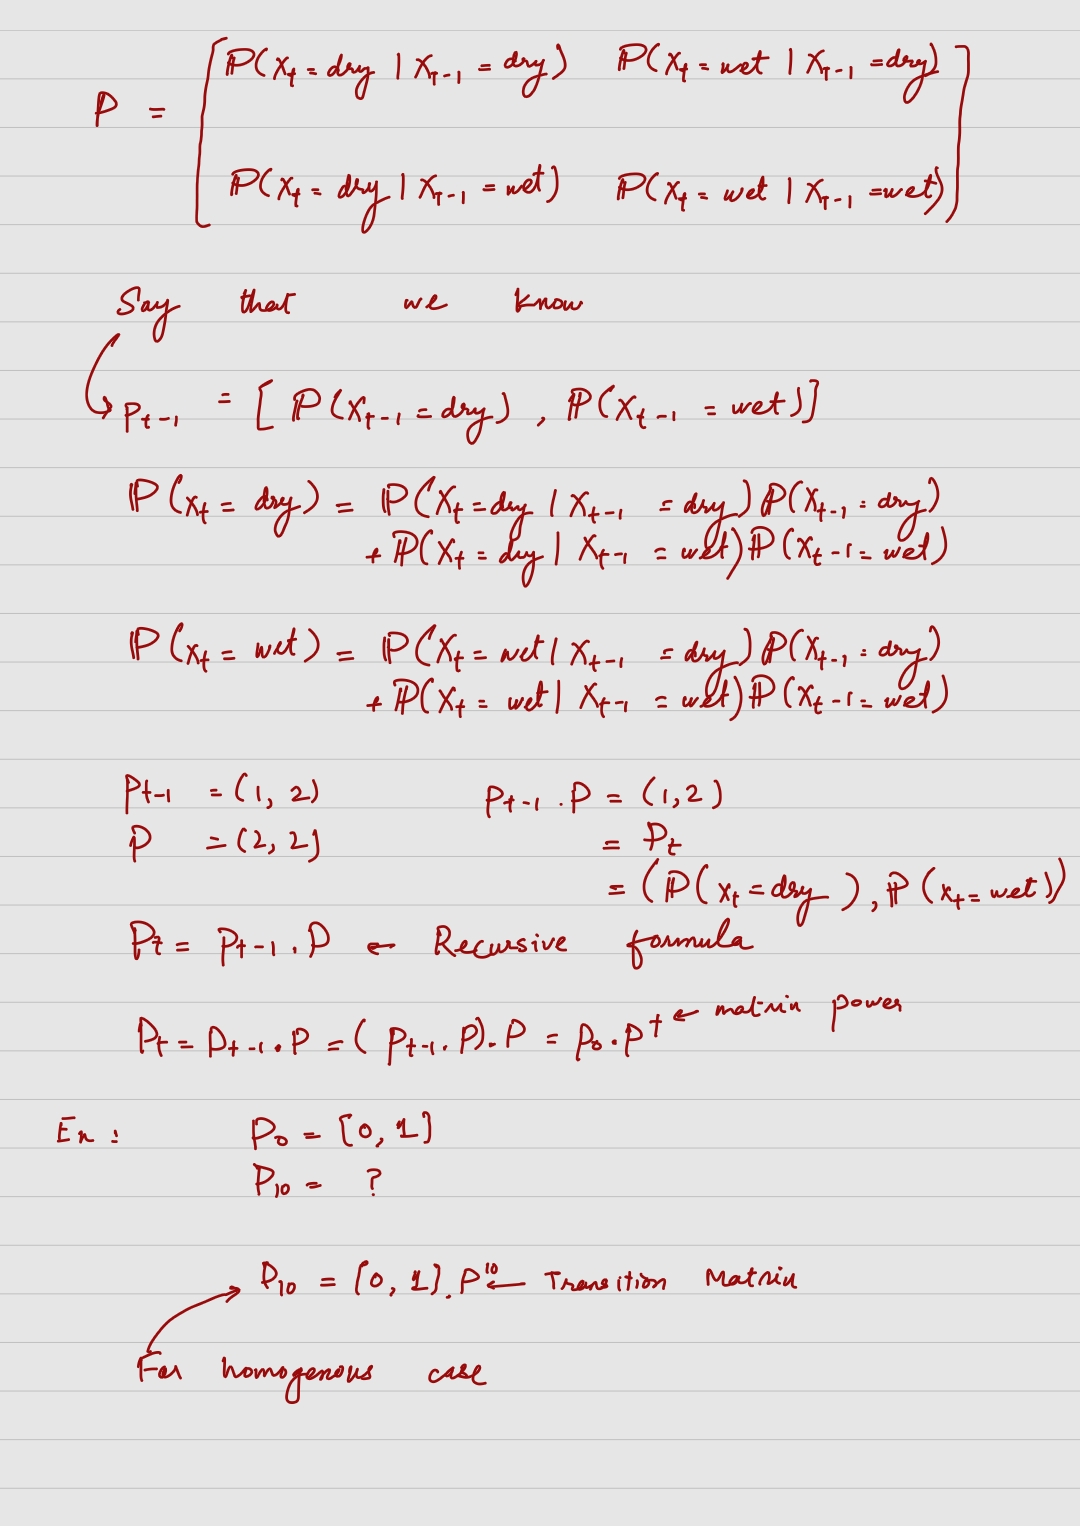 P = [ ℙ(X_t = dry | X_{t-1} = dry) ℙ(X_t = wet | X_{t-1} = dry)
ℙ(X_t = dry | X_{t-1} = wet) ℙ(X_t = wet | X_{t-1} = wet) ]
Say that we know
P_{t-1} = [ ℙ(X_{t-1} = dry) , ℙ(X_{t-1} = wet) ]
ℙ(X_t = dry) = ℙ(X_t = dry | X_{t-1} = dry) ℙ(X_{t-1} = dry)
+ ℙ(X_t = dry | X_{t-1} = wet) ℙ(X_{t-1} = wet)
ℙ(X_t = wet) = ℙ(X_t = wet | X_{t-1} = dry) ℙ(X_{t-1} = dry)
+ ℙ(X_t = wet | X_{t-1} = wet) ℙ(X_{t-1} = wet)
P_{t-1} = (1, 2) P_{t-1} . P = (1, 2)
P = (2, 2) = P_t
= (ℙ(X_t = dry), ℙ(X_t = wet))
P_t = P_{t-1} . P ← Recursive formula
P_t = P_{t-1} . P = ( P_{t-1} . P) . P = P_0 . P^t ← matrix power
Ex : P_0 = [0, 1]
P_10 = ?
P_10 = [0, 1] . P^10 ← Transition Matrix
For homogenous case